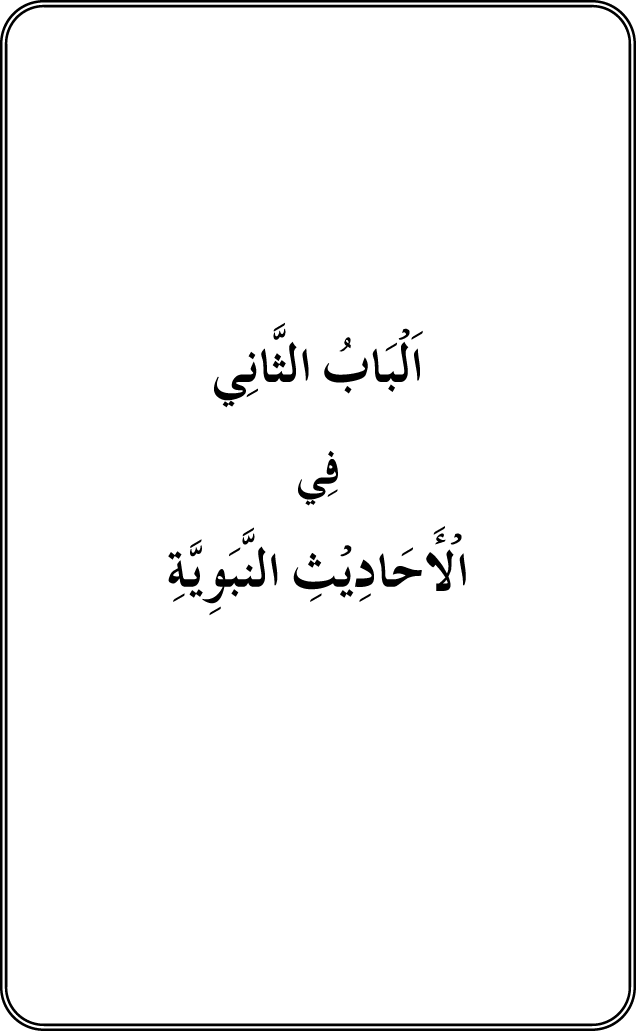 اَلْبَابُ الثَّانِي
فِي
الْأَحَادِيْثِ النَّبَوِيَّةِ